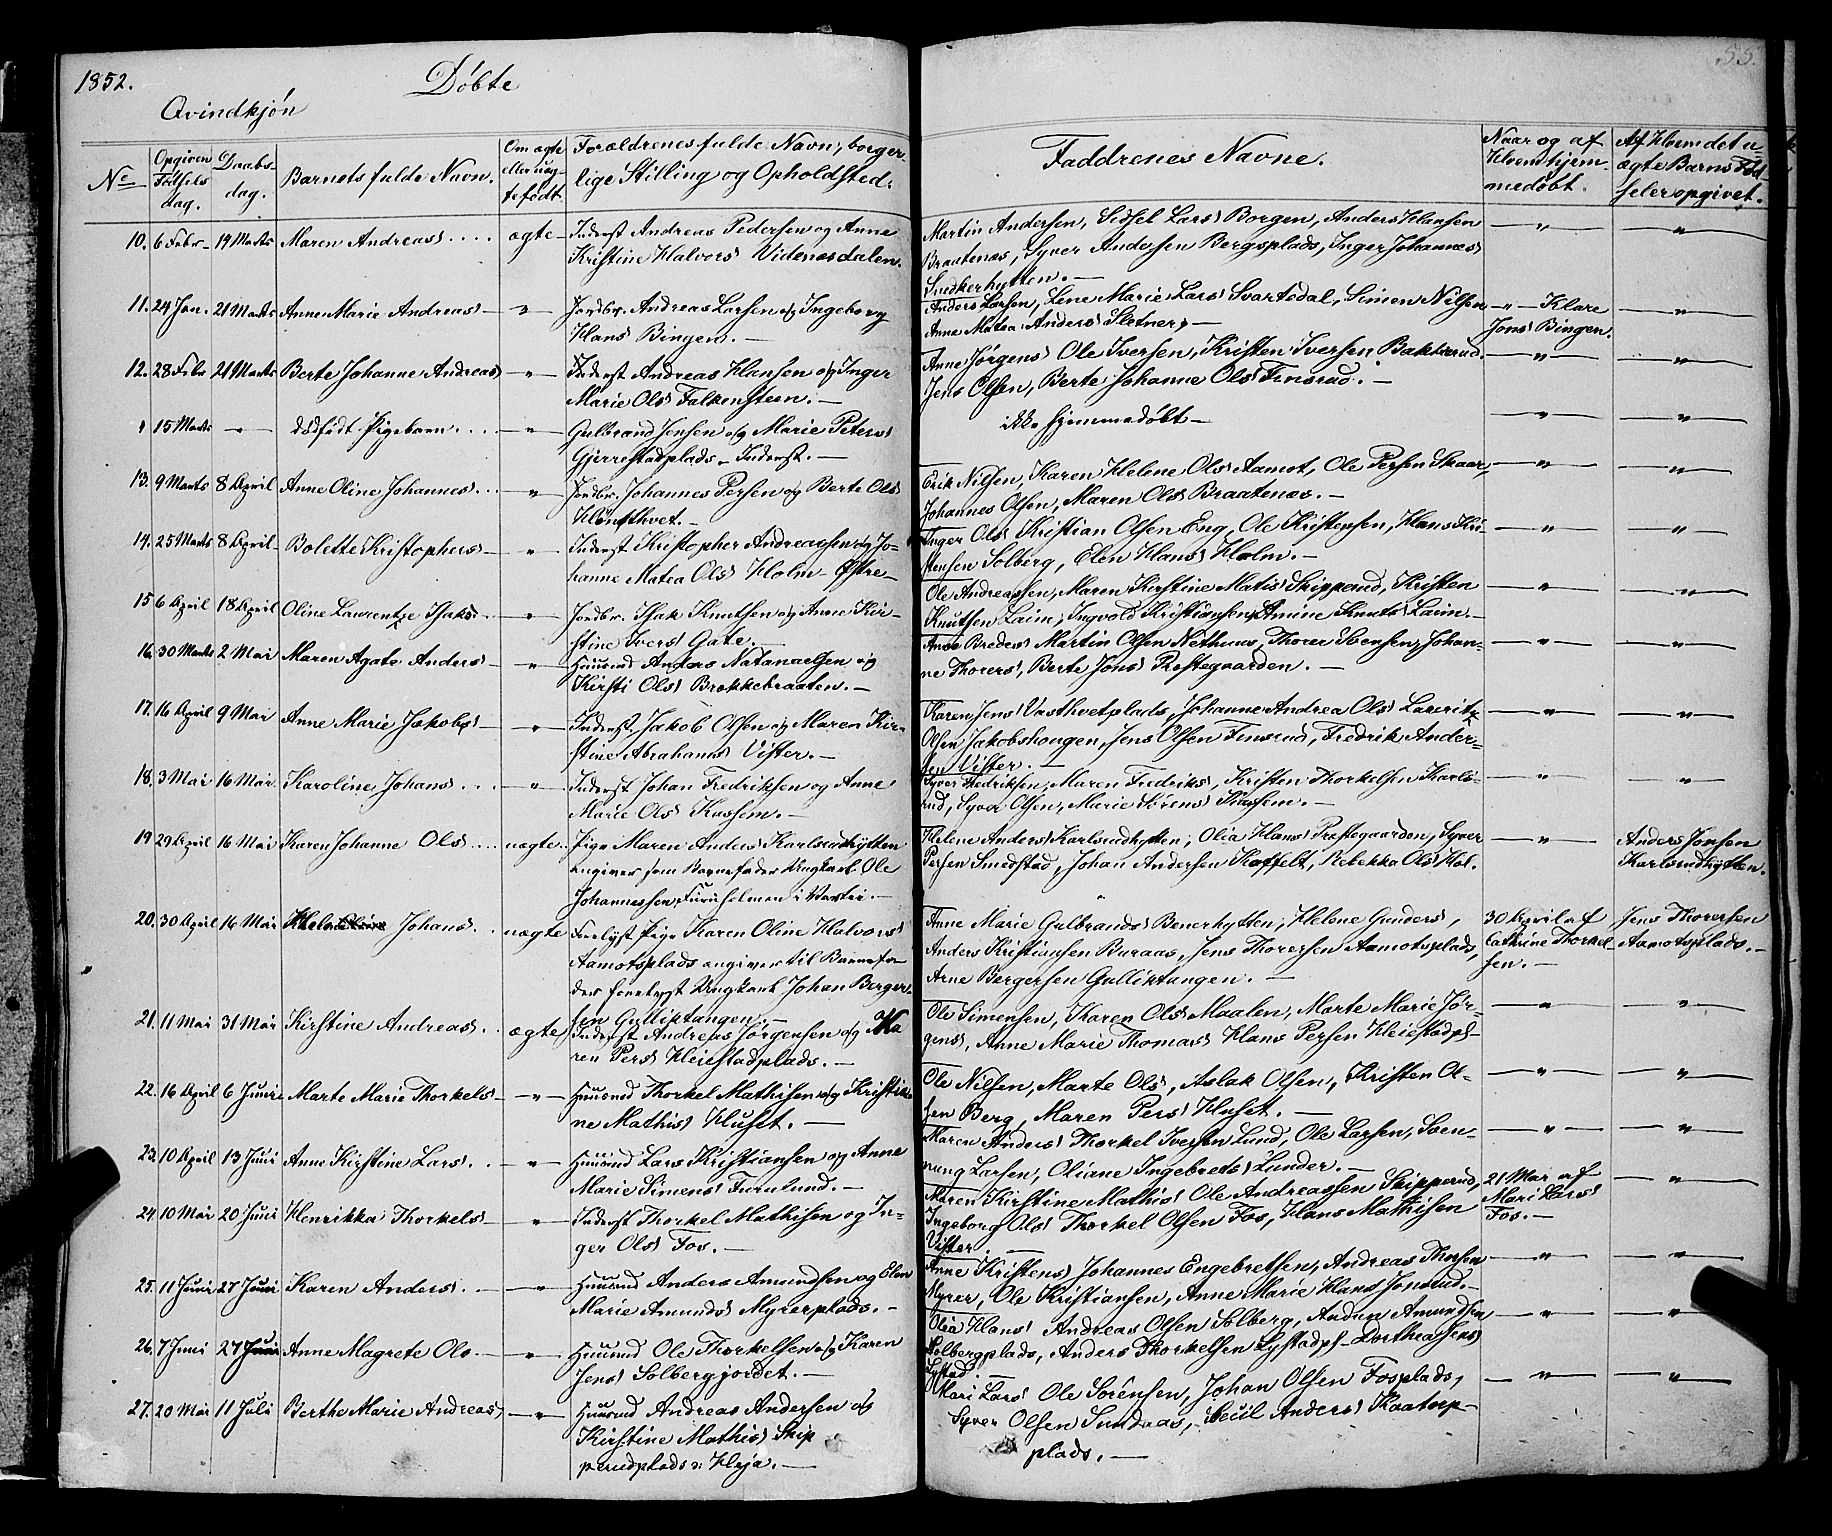 1852.
Døbte
55.
Qvindkjøn
No
Opgiven Fødsels dag.
Daabs dag.
Barnets fulde Navn.
Om ægte eller uægte født.
Forældrenes fulde Navn, borgerlige Stilling og Opholdsted.
Faddrenes Navne.
Naar og af Hvem hjemmedøbt.
Af Hvem det uægte Barns Fødseler opgivet.
10. 6 Febr 19 Marts Maren Andreas ægte Inderst Andreas Pedersen og Anne
Kristine Halvors Videnesdalen.
Martin Andersen, Sidsel Lars Borgen, Anders Hansen
Braatenæs, Syver Andersen Bergsplads, Inger Johannes
Snedkerhytten.
11. 24 Jan. 21 Marts Anne Marie Andreas Jordbr. Andreas Larsen og Ingeborg
Hans Bingen.
Anders Larsen, Lene Marie Lars Svartedal, Simen Nilsen
Anne Matea Anders Sletner,
Klare
Jons Bingen.
12. 28 Febr 21 Marts Berte Johanne Andreas Inderst Andreas Hansen og Inger
Marie Ols Falkensteen.
Anne Jørgens Ole Iversen, Kristen Iversen Bakkerud.
Jens Olsen, Berte Johanne Ols Finsrud.
" 15 Marts dødfødt Pigebarn Gulbrand Jensen og Marie Peters
Gjerrestadplads Inderst.
ikke hjemmedøbt
13. 9 Marts 8 April Anne Oline Johannes Jordbr. Johannes Persen og Berte Ols
Hønsthvet.
Erik Nilsen, Karen Helene Ols Aamot, Ole Persen Skaar,
Johannes Olsen, Maren Ols Braatenæs.
14. 25 Marts 8 April Bolette Kristophers Inderst Kristopher Andreassen og Jo-
hanne Matea Ols Holm Østre
Inger Ols Kristian Olsen Eng, Ole Kristensen, Hans Kri-
stensen Solberg, Elen Hans Holm.
15 6 April 18 April Oline Laurentze Isaks Jordbr. Isak Knutsen og Anne Kir-
stine Ivers Gate.
Ole Andreassen, Maren Kirstine Matis Skipperud, Kristen
Knutsen Laim, Ingvold Kristiansen Amine Knuts Laim.
16. 30 Marts 2 Mai Maren Agate Anders Huusmd Anders Natanaelsen og
Kirsti Ols Brekkebraaten.
Anne Breders Martin Olsen Nathuus, Thorer Svensen, Johan-
ne Thorers, Berte Jons Prestegaarden.
17. 16 April 9 Mai Anne Marie Jakobs Inderst Jakob Olsen og Maren Kir-
stine Abrahams Vister.
Karen Jens Vesthvetplads, Johanne Andrea Ols Lauritz
Olsen Jakobshougen, Jens Olsen Finsrud, Fredrik Ander-
sen Vister.
18. 3 Mai 16 Mai Karoline Johans Inderst Johan Fredriksen og Anne
Marie Ols Krossem.
Syver Fredriksen, Maren Fredriks, Kristen Thorkelsen Karls-
rud, Syver Olsen, Marie Sørens Krossem.
19. 29 April 16 Mai Karen Johanne Ols uægte Pige Maren Anders Karlsrudhytten
angiver som Barnefader Ungkarl Ole
Johannessen Furuholmen i Varteig.
Helene Anders Karlsrudhytten, Olia Hans Prestegaarden, Syver
Persen Smedstad, Johan Andersen Kaffelt, Rebekka Ols Hol.
Anders Jonsen
Karlsrudhytten.
20. 30 April 16 Mai Helene Johans uægte Forelyst Pige Karen Oline Halvors
Aamotsplads angiver til Barnefa-
der forelyst Ungkarl Johan Berger-
sen Gulliktangen.
Anne Marie Gulbrands Benerhytten, Helene Gunders,
Anders Kristiansen Buraas, Jens Thoresen Aamotsplads,
Arne Bergersen Gulliktangen.
30 April af
Cathrine Thorkel-
sen.
Jens Thorersen
Aamotsplads.
21. 11 Mai 31 Mai Kirstine Andreas ægte Inderst Andreas Jørgensen og Ma
ren Pers Heiestadplads.
Ole Simensen, Karen Ols Maalen, Marte Marie Jør-
gens, Anne Marie Thomas Hans Persen Heiestadpl
22. 16 April 6 Juni Marte Marie Thorkels Huusmd Thorkel Mathisen og Kristia
ne Mathis Huset.
Ole Nilsen, Marte Ols, Aslak Olsen, Kristen Ol-
sen Berg, Maren Pers Huset.
23. 10 April 13 Juni Anne Kirstine Lars. Huusmd Lars Kristiansen og Anne
Marie Simens Furulund.
Maren Anders Thorkel Iversen Lund, Ole Larsen, Sven-
nung Larsen, Oliane Ingebrets Lunder.
24. 10 Mai 20 Juni Henrikka Thorkels Inderst Thorkel Mathisen og In-
ger Ols Fos.
Maren Kirstine Mathis Ole Andreassen Skipperud,
Ingeborg Ols Thorkel Olsen Fos, Hans Mathisen
Vister.
21 Mai af
Mari Lars
Fos.
25. 11 Juni 27 Juni Karen Anders. Huusmd Anders Amundsen og Elen
Marie Amunds Myrerplads.
Anne Kristens Johannes Engebretsen, Andreas Thorsen
Myrer, Ole Kristiansen, Anne Marie Hans Jonsrud.
26. 7 Juni 27 Juni Anne Magrete Ols Huusmd Ole Thorkelsen og Karen
Jens Solbergjordet.
Olia Hans Andreas Olsen Solberg, Anders Amundsen
Solbergplads, Anders Thorkelsen Lystadpl Dorthea Jens
Lystad.
27. 20 Mai 11 Juli Berthe Marie Andreas, Huusmd Andreas Andersen og
Kirstine Mathis Skip
perudplads: Heja.
Mari Lars Ole Sørensen, Johan Olsen Fosplads,
Syver Olsen Sundaas, Cecil Anders Kaatorp-
plads.